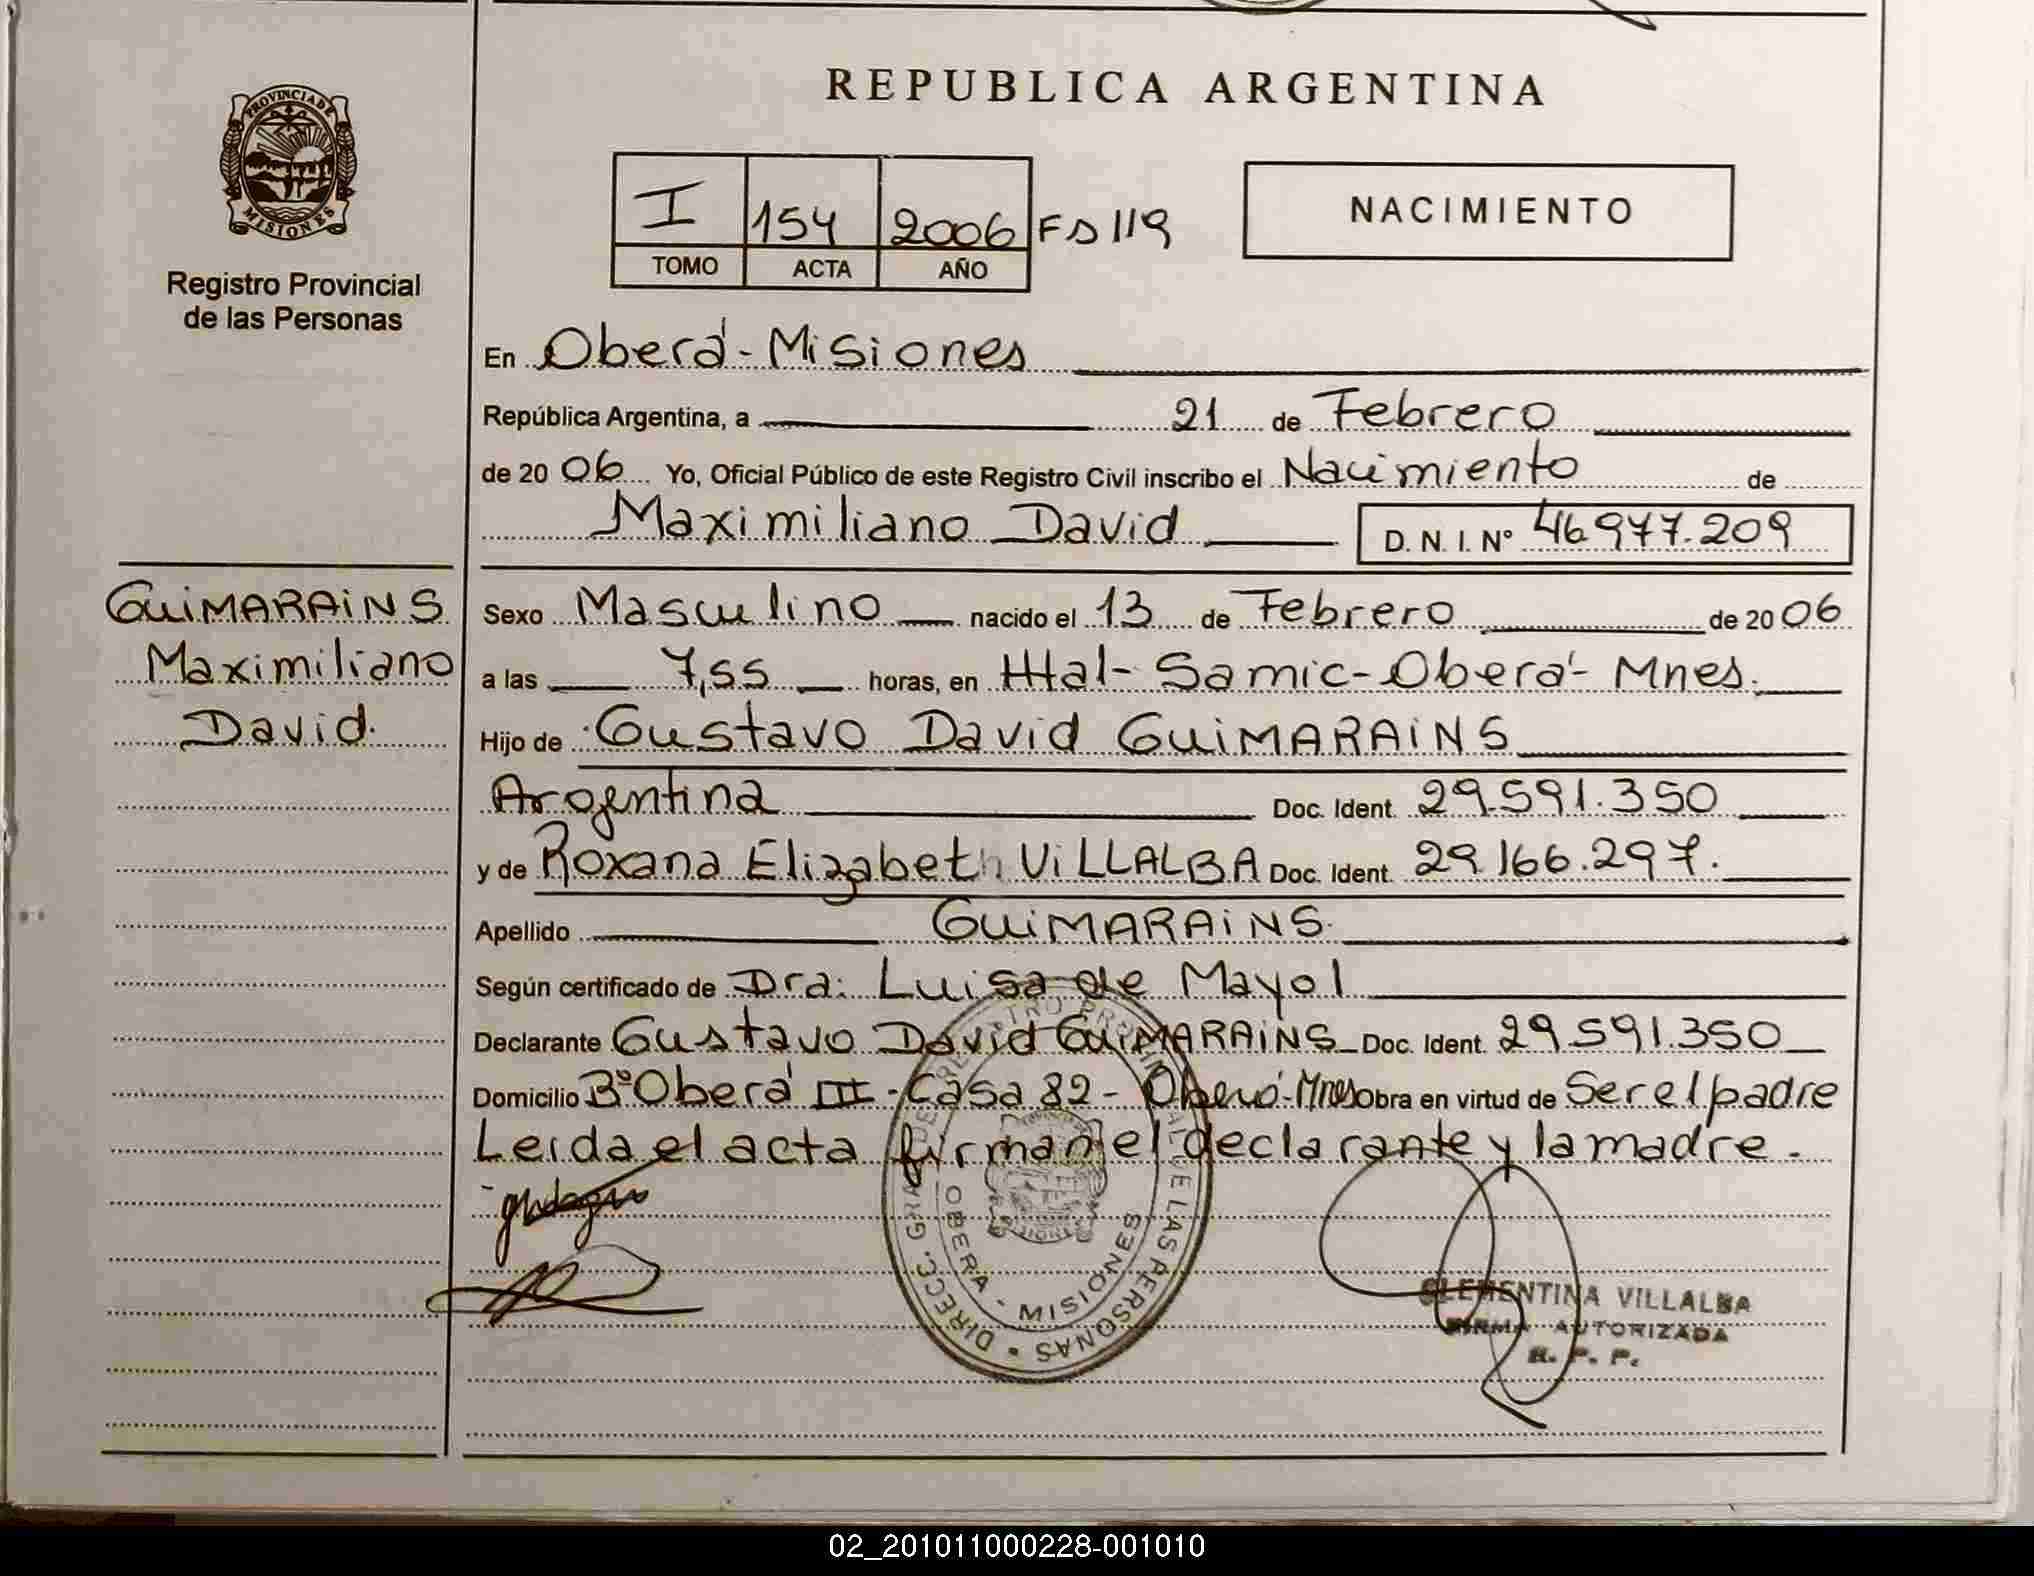 REPUBLICA ARGENTINA
PROVINCIA DE MISIONES
Registro Provincial
de las Personas
I 154 2006 FS 119
TOMO ACTA AÑO
NACIMIENTO
En Oberá - Misiones
República Argentina, a 21 de Febrero
de 20 06 Yo, Oficial Público de este Registro Civil inscribo el Nacimiento de
Maximiliano David D. N. I. N° 46977.209
GUiMARAiNS
Maximiliano
David.
Sexo Masculino nacido el 13 de Febrero de 20 06
a las 7,55 horas, en Htal - Samic - Oberá - Mnes.
Hijo de Gustavo David GUiMARAiNS
Argentina Doc. Ident. 29.591.350
y de Roxana Elizabeth ViLLALBA Doc. Ident. 29.166.297.
Apellido GUiMARAiNS.
Según certificado de Dra: Luisa de Mayol
Declarante Gustavo David GUiMARAiNS Doc. Ident. 29.591.350
Domicilio Bº Oberá III - Casa 82 - Oberá - Mnes obra en virtud de Ser el padre
Leida el acta firman el declarante y la madre.
DIRECC. GRAL. DEL REGISTRO PROVINCIAL DE LAS PERSONAS
OBERA - MISIONES
CLEMENTINA VILLALBA
FIRMA AUTORIZADA
R. P. P.
02_201011000228-001010